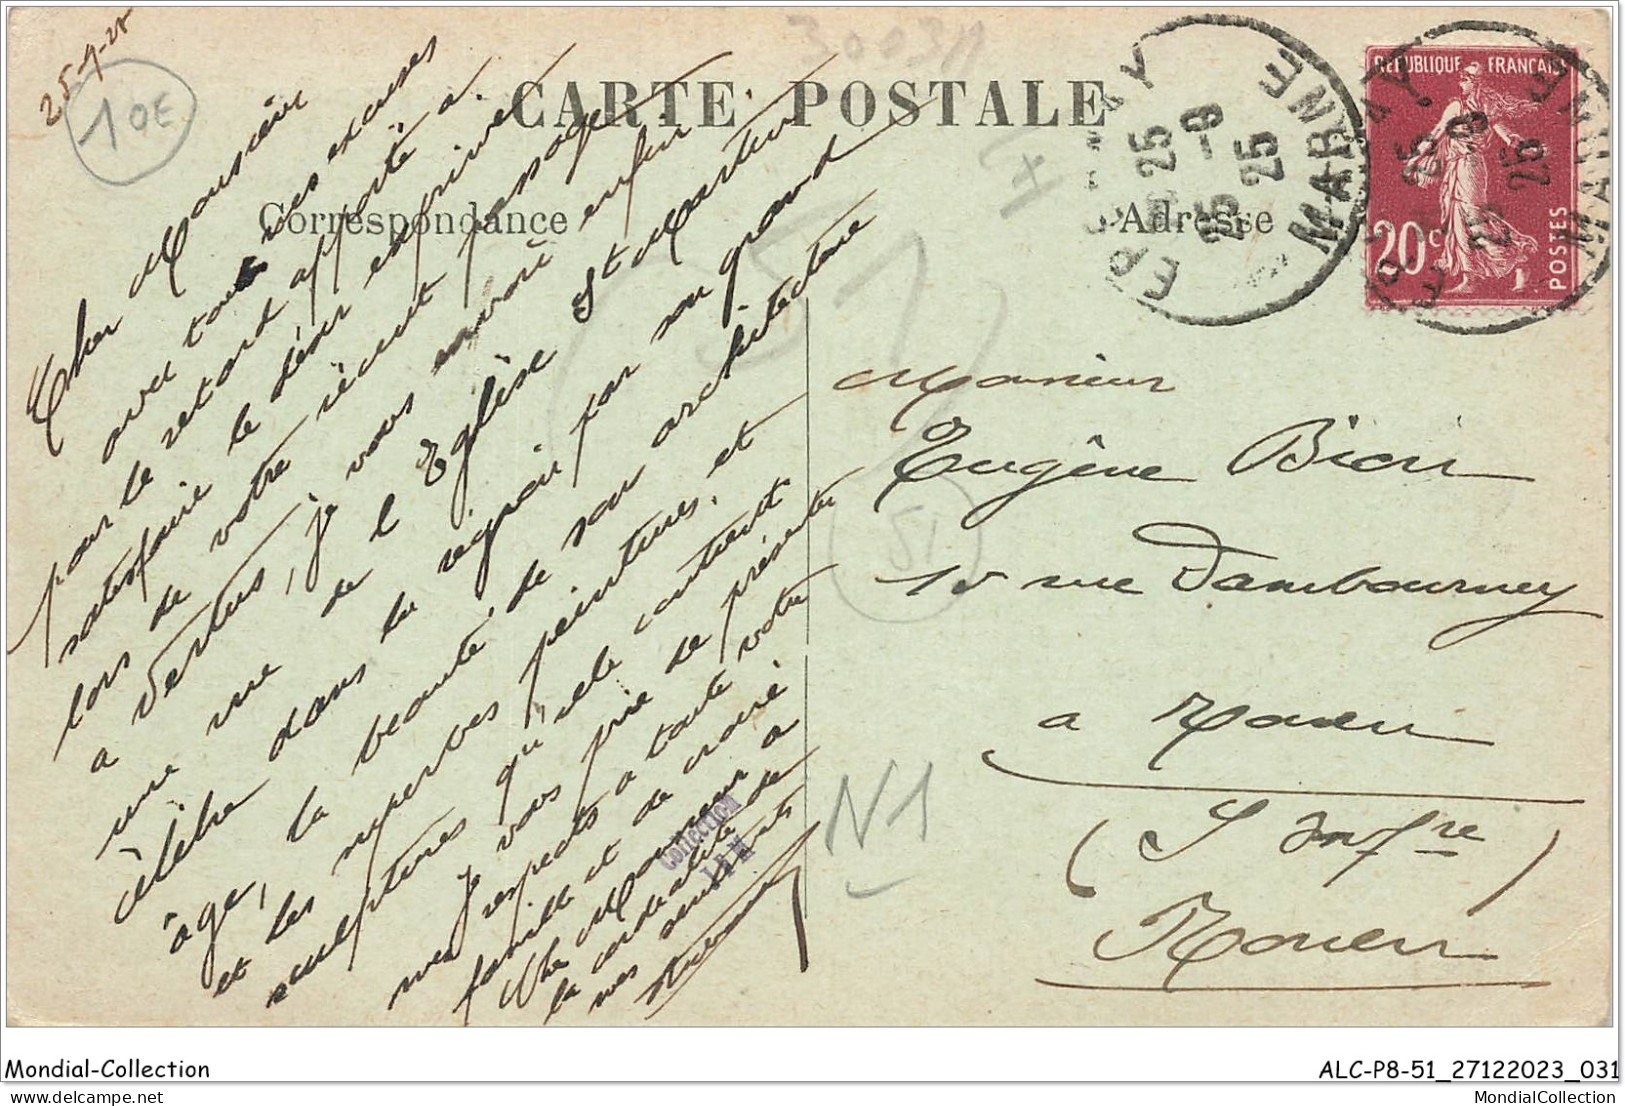 25-9-25
10E
3003A
CARTE POSTALE
Correspondance
Adresse
EPERNAY
25
25 -9
25
MARNE
REPUBLIQUE FRANÇAISE
20c
POSTES
Cher Monsieur
avec toutes mes excuses
pour le retard apporté à
satisfaire le désir exprimé
lors de votre récent passage
à Vertus, je vous envoie enfin
une vue de l'Eglise St Martin
célèbre dans la région par son grand
âge, la beauté de son architecture
et les superbes peintures et
sculptures qu'elle contient
Je vous prie de présenter
mes respects à toute votre
famille et de croire
Cher Monsieur à
la cordialité de
mes sentiments
51
51
N1
Collection
Monsieur
Eugène Bion
15 rue Dambourney
à Rouen
(S Infre)
Rouen
Mondial-Collection
ALC-P8-51_27122023_031
MondialCollection